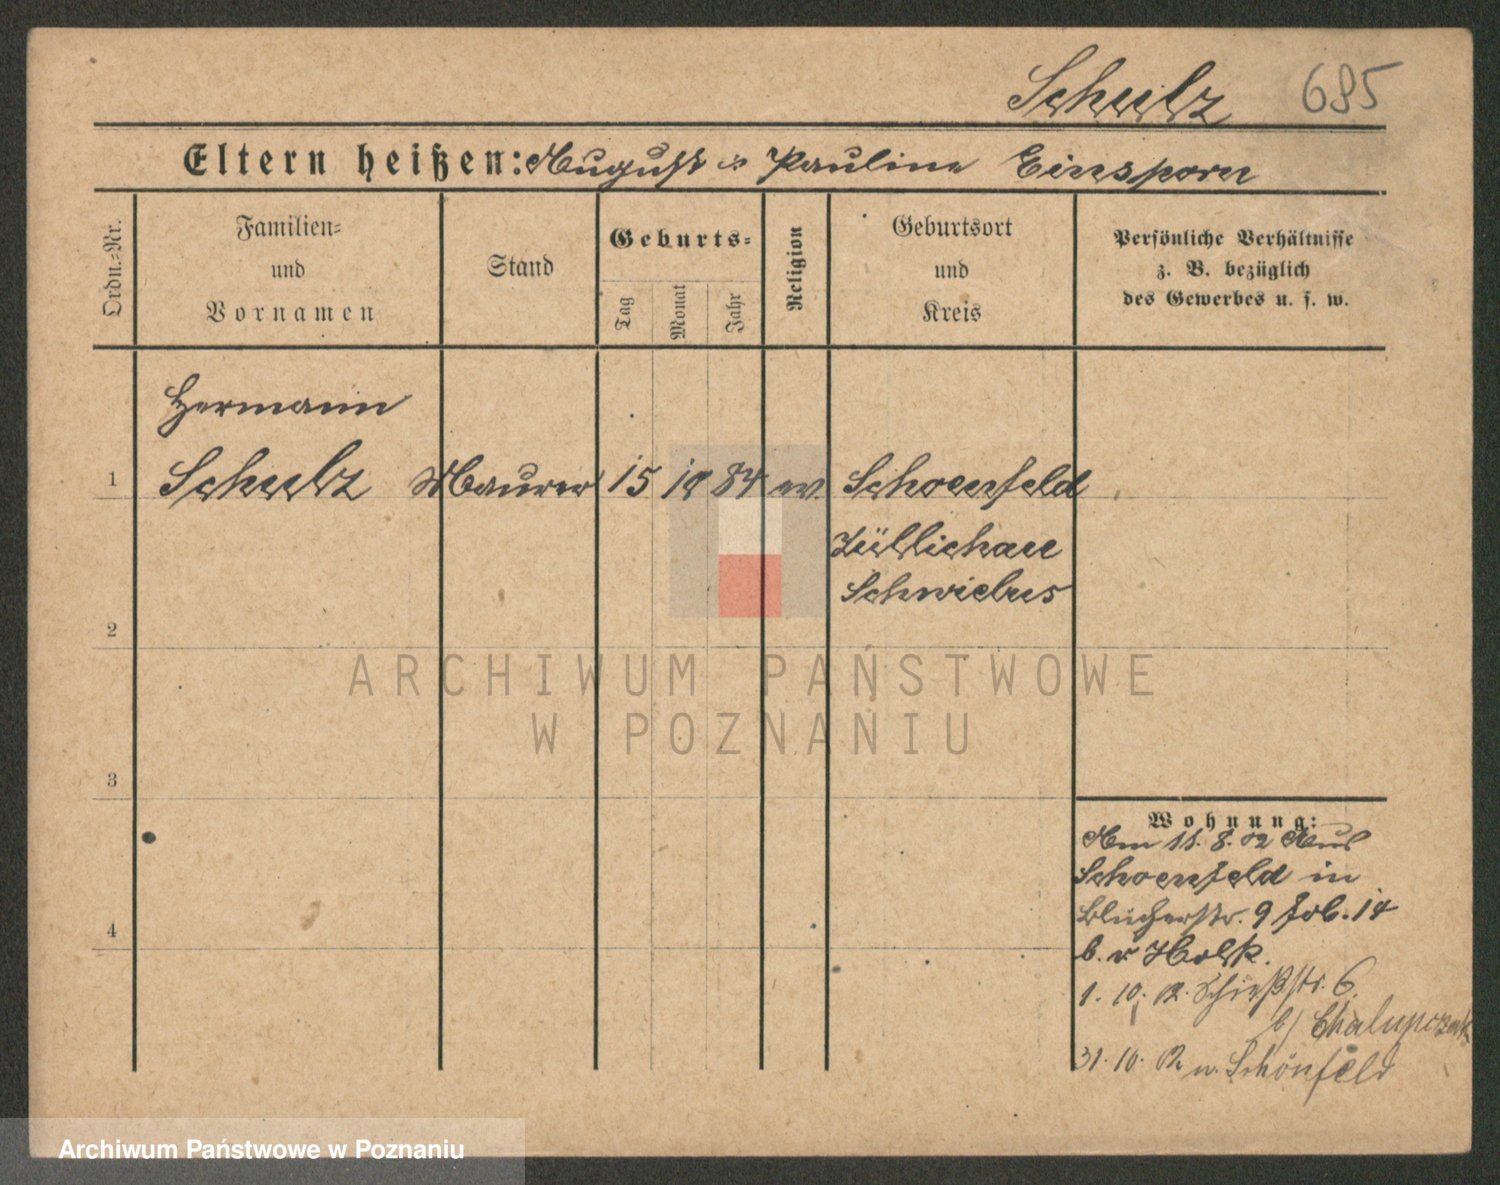 Schulz 685
Eltern heißen: August u Pauline Einsporn
Ordn.-Nr.
Familien-
und
Vornamen
Stand
Geburts-
Tag
Monat
Jahr
Religion
Geburtsort
und
Kreis
Persönliche Verhältnisse
z. B. bezüglich
des Gewerbes u. s. w.
Hermann
1 Schulz Maurer 15 10 84 ev. Schoenfeld
Züllichau
Schwiebus
2
ARCHIWUM PAŃSTWOWE
W POZNANIU
3
Wohnung:
Am 11. 8. 02 Aus
Schoenfeld in
Blücherstr. 9 14
4
b. v
1. 10. 02. Schießstr. 6
b/ Chalupczak
31. 10. 02 n. Schönfeld
Archiwum Państwowe w Poznaniu